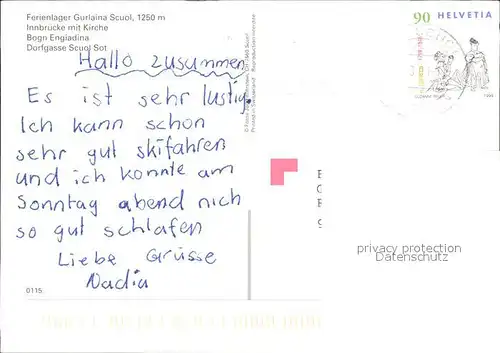 Ferienlager Gurlaina Scuol, 1250 m
Innbrücke mit Kirche
Bogn Engiadina
Dorfgasse Scuol Sot
Hallo zusammen
Es ist sehr lustig.
Ich kann schon
sehr gut skifahren
und ich konnte am
Sonntag abend nich
so gut schlafen
Liebe Grüsse
Nadia
0115
90 HELVETIA
privacy protection
Datenschutz